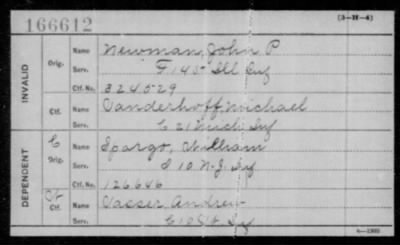 166612
[3-H-4]
INVALID
Orig.
Name Newman, John P
Serv. F 145 Ill Inf
Ctf. No. 824529
Ctf.
Name Vanderhoff, Michael
Serv. E 21 Mich Inf
DEPENDENT
C
Orig.
Name Spargo, William
Serv. I 10 N.J. Inf
Ctf. No. 126646
Ctf.
Name Vasser, Andrew
Serv. Inf